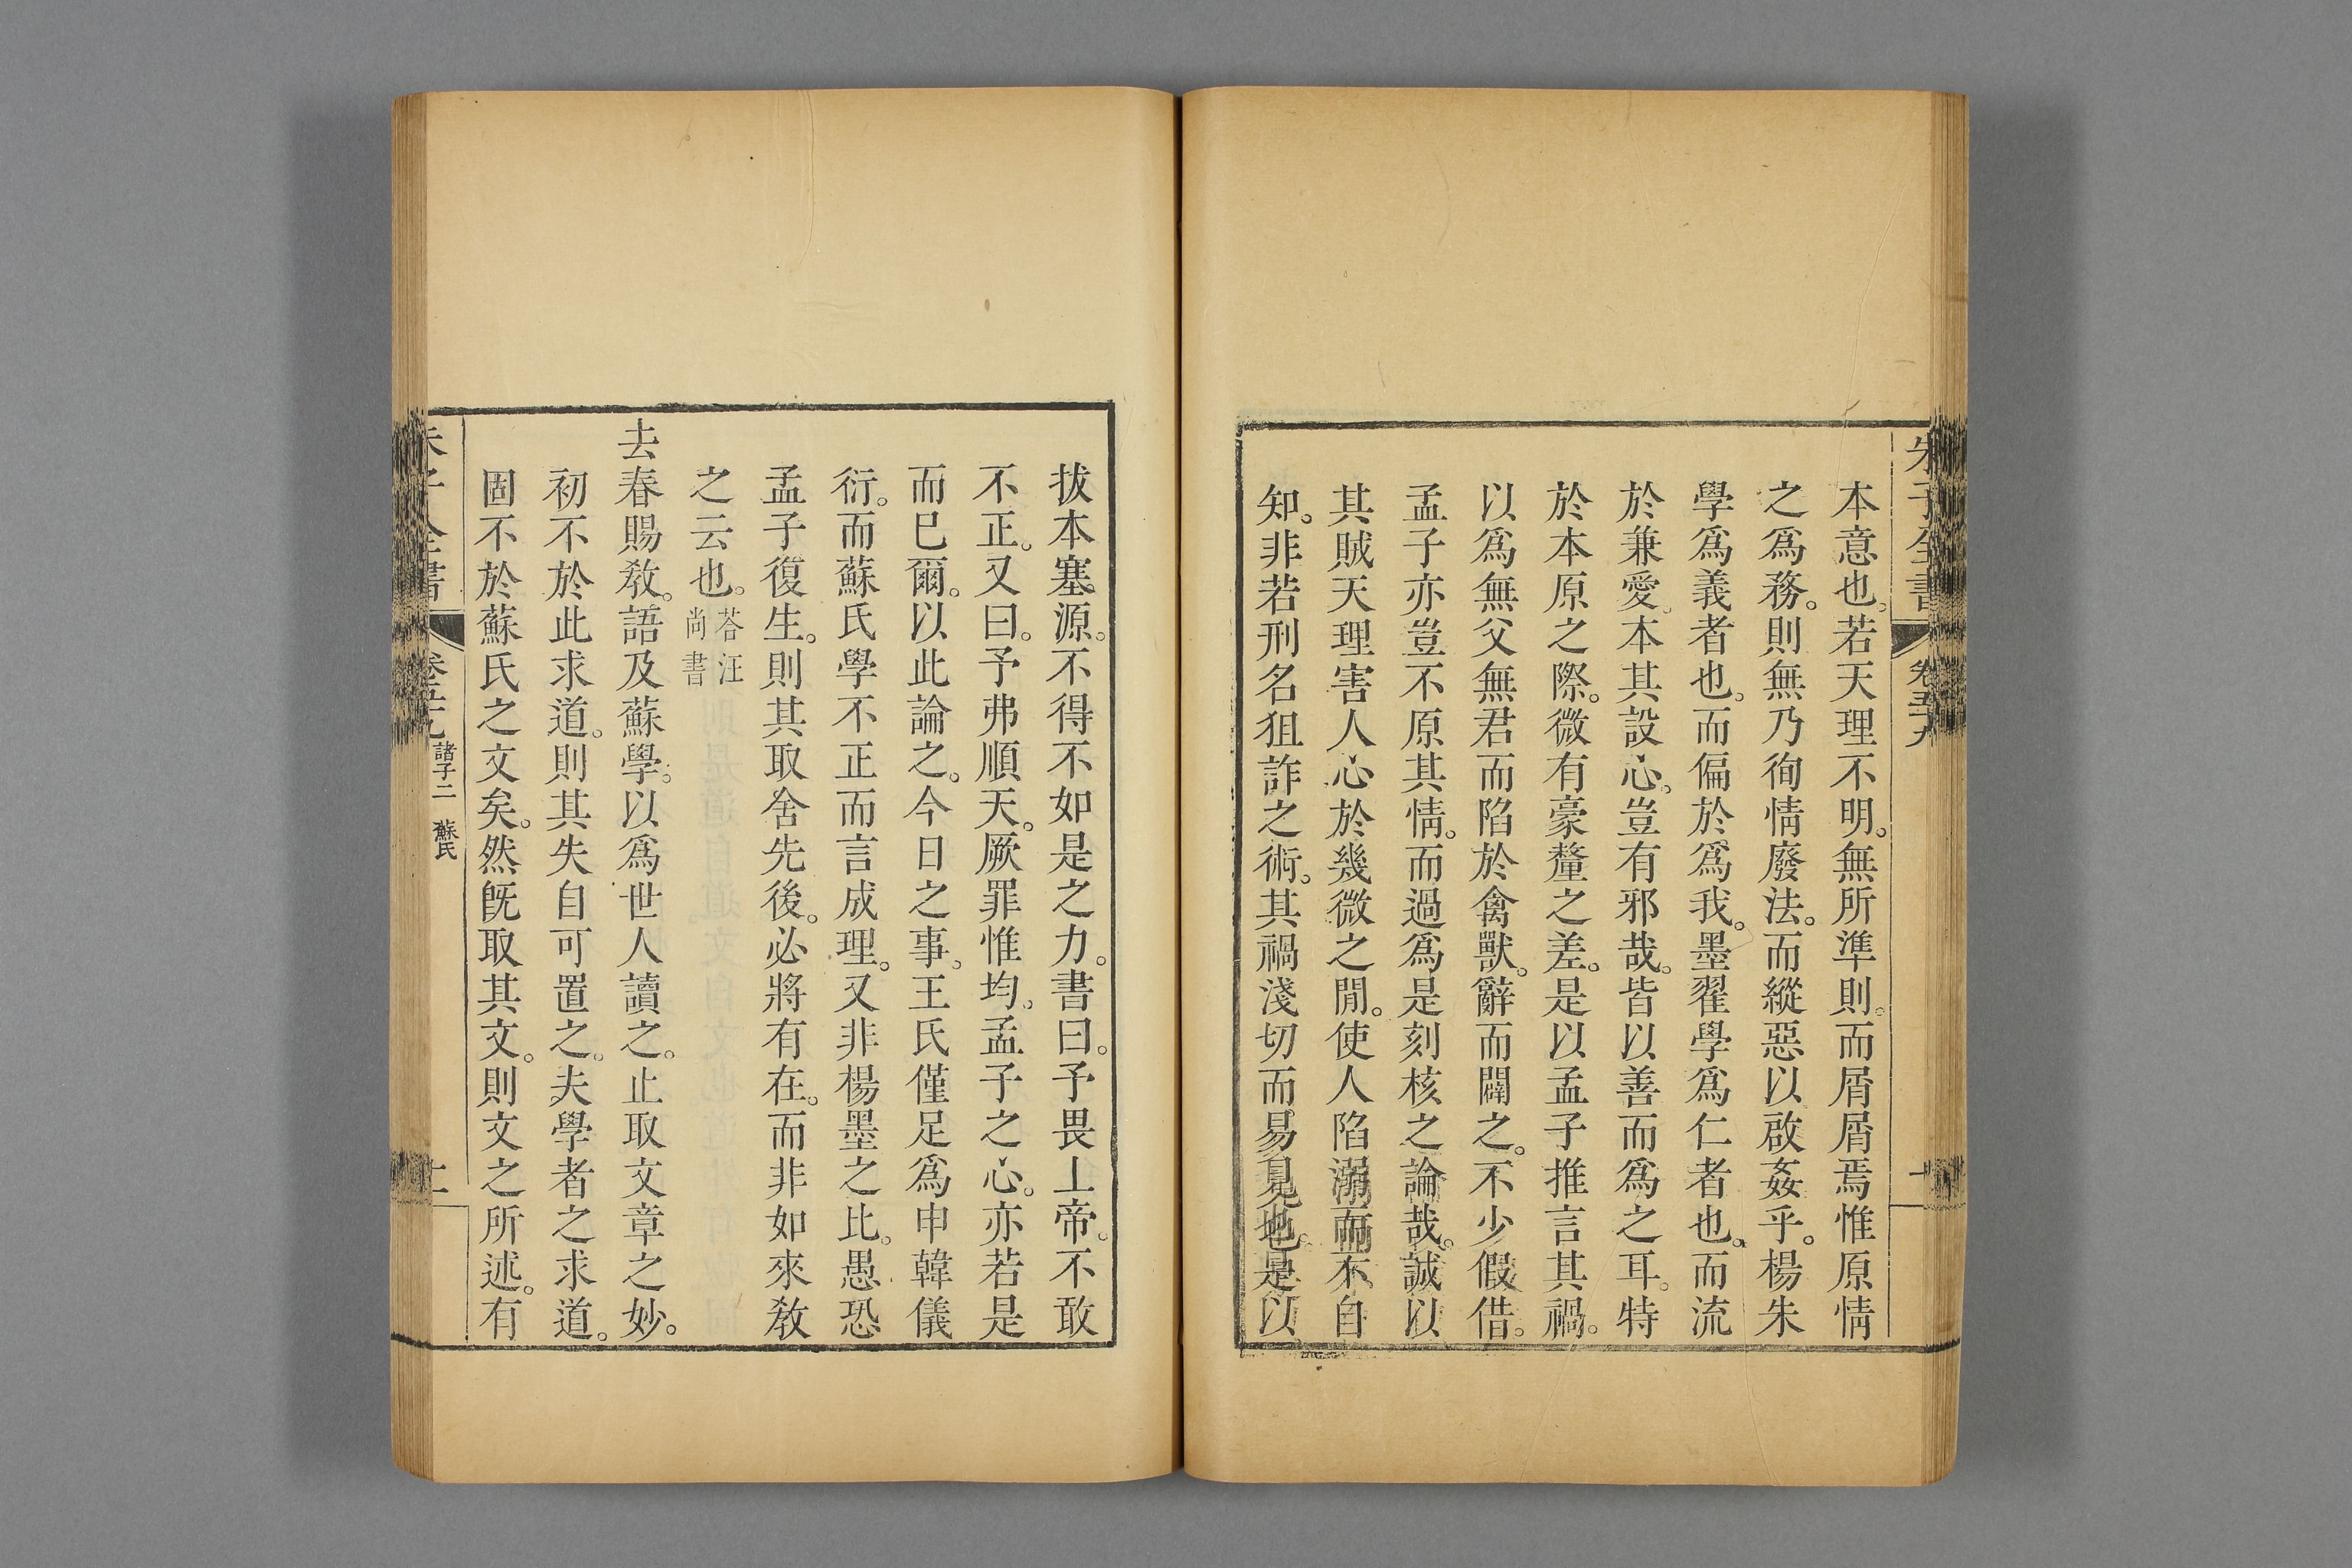 朱子全書 卷五十九
本意也。若天理不明。無所準則。而屑屑焉惟原情
之爲務。則無乃徇情廢法。而縱惡以啟姦乎。楊朱
學爲義者也。而偏於爲我。墨翟學爲仁者也。而流
於兼愛。本其設心。豈有邪哉。皆以善而爲之耳。特
於本原之際。微有豪釐之差。是以孟子推言其禍。
以爲無父無君而陷於禽獸。辭而闢之。不少假借。
孟子亦豈不原其情。而過爲是刻核之論哉。誠以
其賊天理害人心於幾微之閒。使人陷溺而不自
知。非若刑名狙詐之術。其禍淺切而易見也。是以
拔本塞源。不得不如是之力。書曰。予畏上帝。不敢
不正。又曰。予弗順天。厥罪惟均。孟子之心。亦若是
而巳爾。以此論之。今日之事。王氏僅足爲申韓儀
衍。而蘇氏學不正而言成理。又非楊墨之比。愚恐
孟子復生。則其取舍先後。必將有在。而非如來敎
之云也。荅汪尚書
去春賜敎。語及蘇學。以爲世人讀之。止取文章之妙。
初不於此求道。則其失自可置之。夫學者之求道。
固不於蘇氏之文矣。然旣取其文。則文之所述。有
諸子二 蘇氏